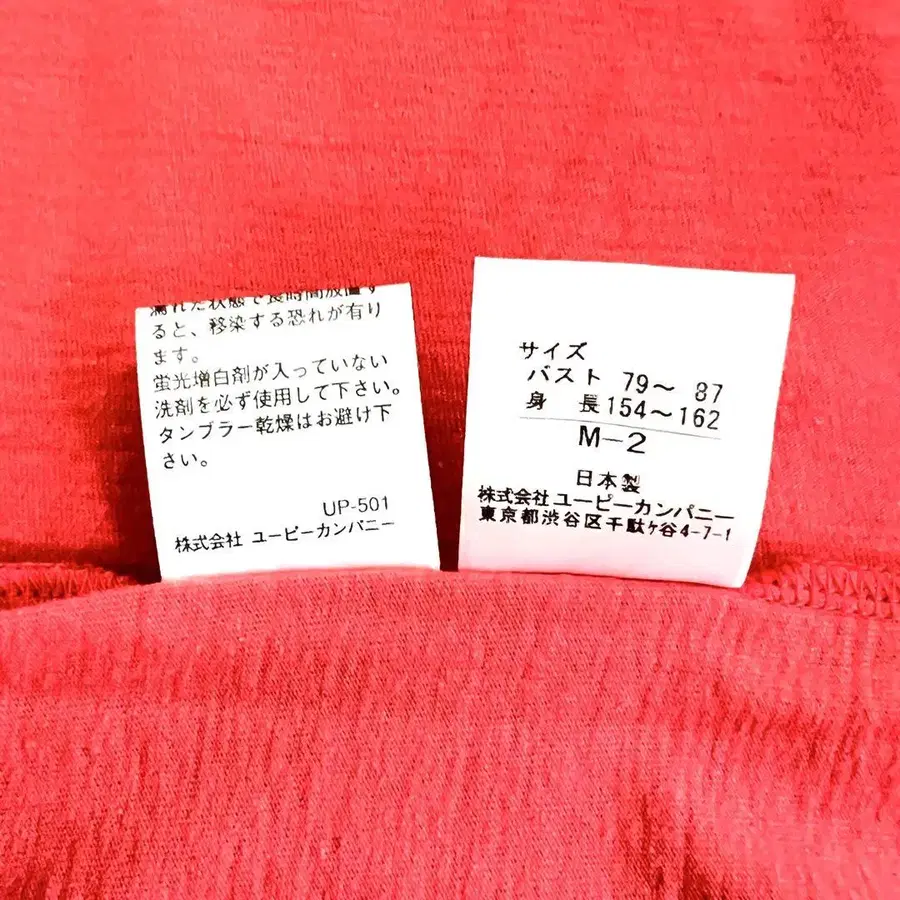 濡れた状態で長時間放置す
ると、移染する恐れが有り
ます。
蛍光増白剤が入っていない
洗剤を必ず使用して下さい。
タンブラー乾燥はお避け下
さい。
UP-501
株式会社 ユーピーカンパニー
サイズ
バスト 79〜 87
身 長 154〜162
M-2
日本製
株式会社 ユーピーカンパニー
東京都渋谷区千駄ヶ谷4-7-1